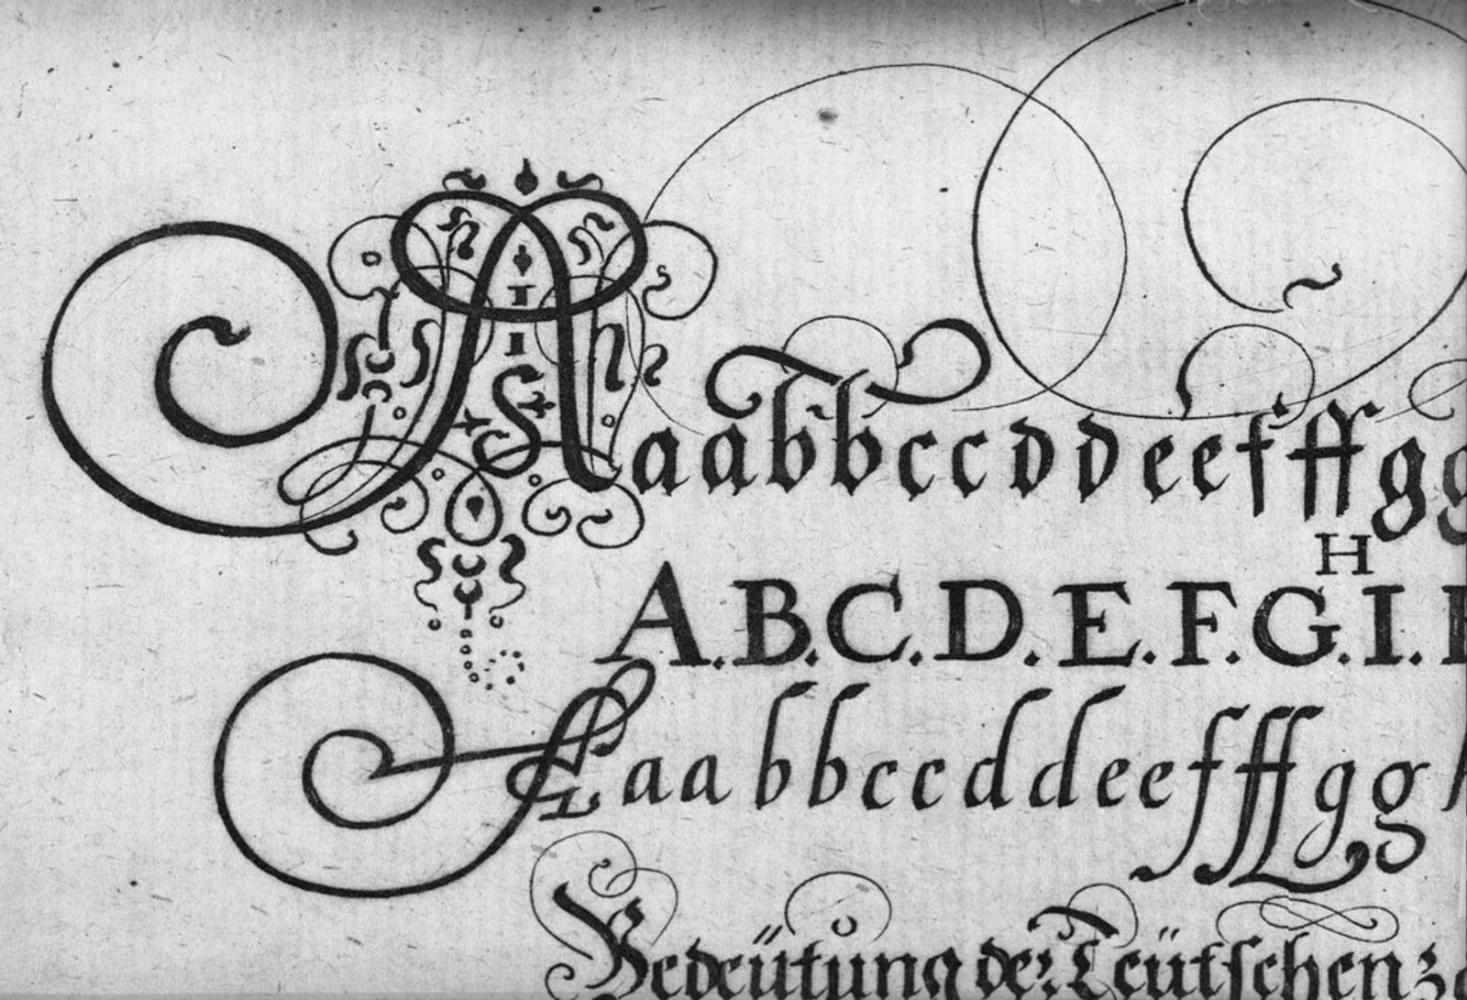 A aabbccddeefffgg
H
A.B.C.D.E.F.G.I.
A aabbccddeefffgg
Bedeütung der Teütschen